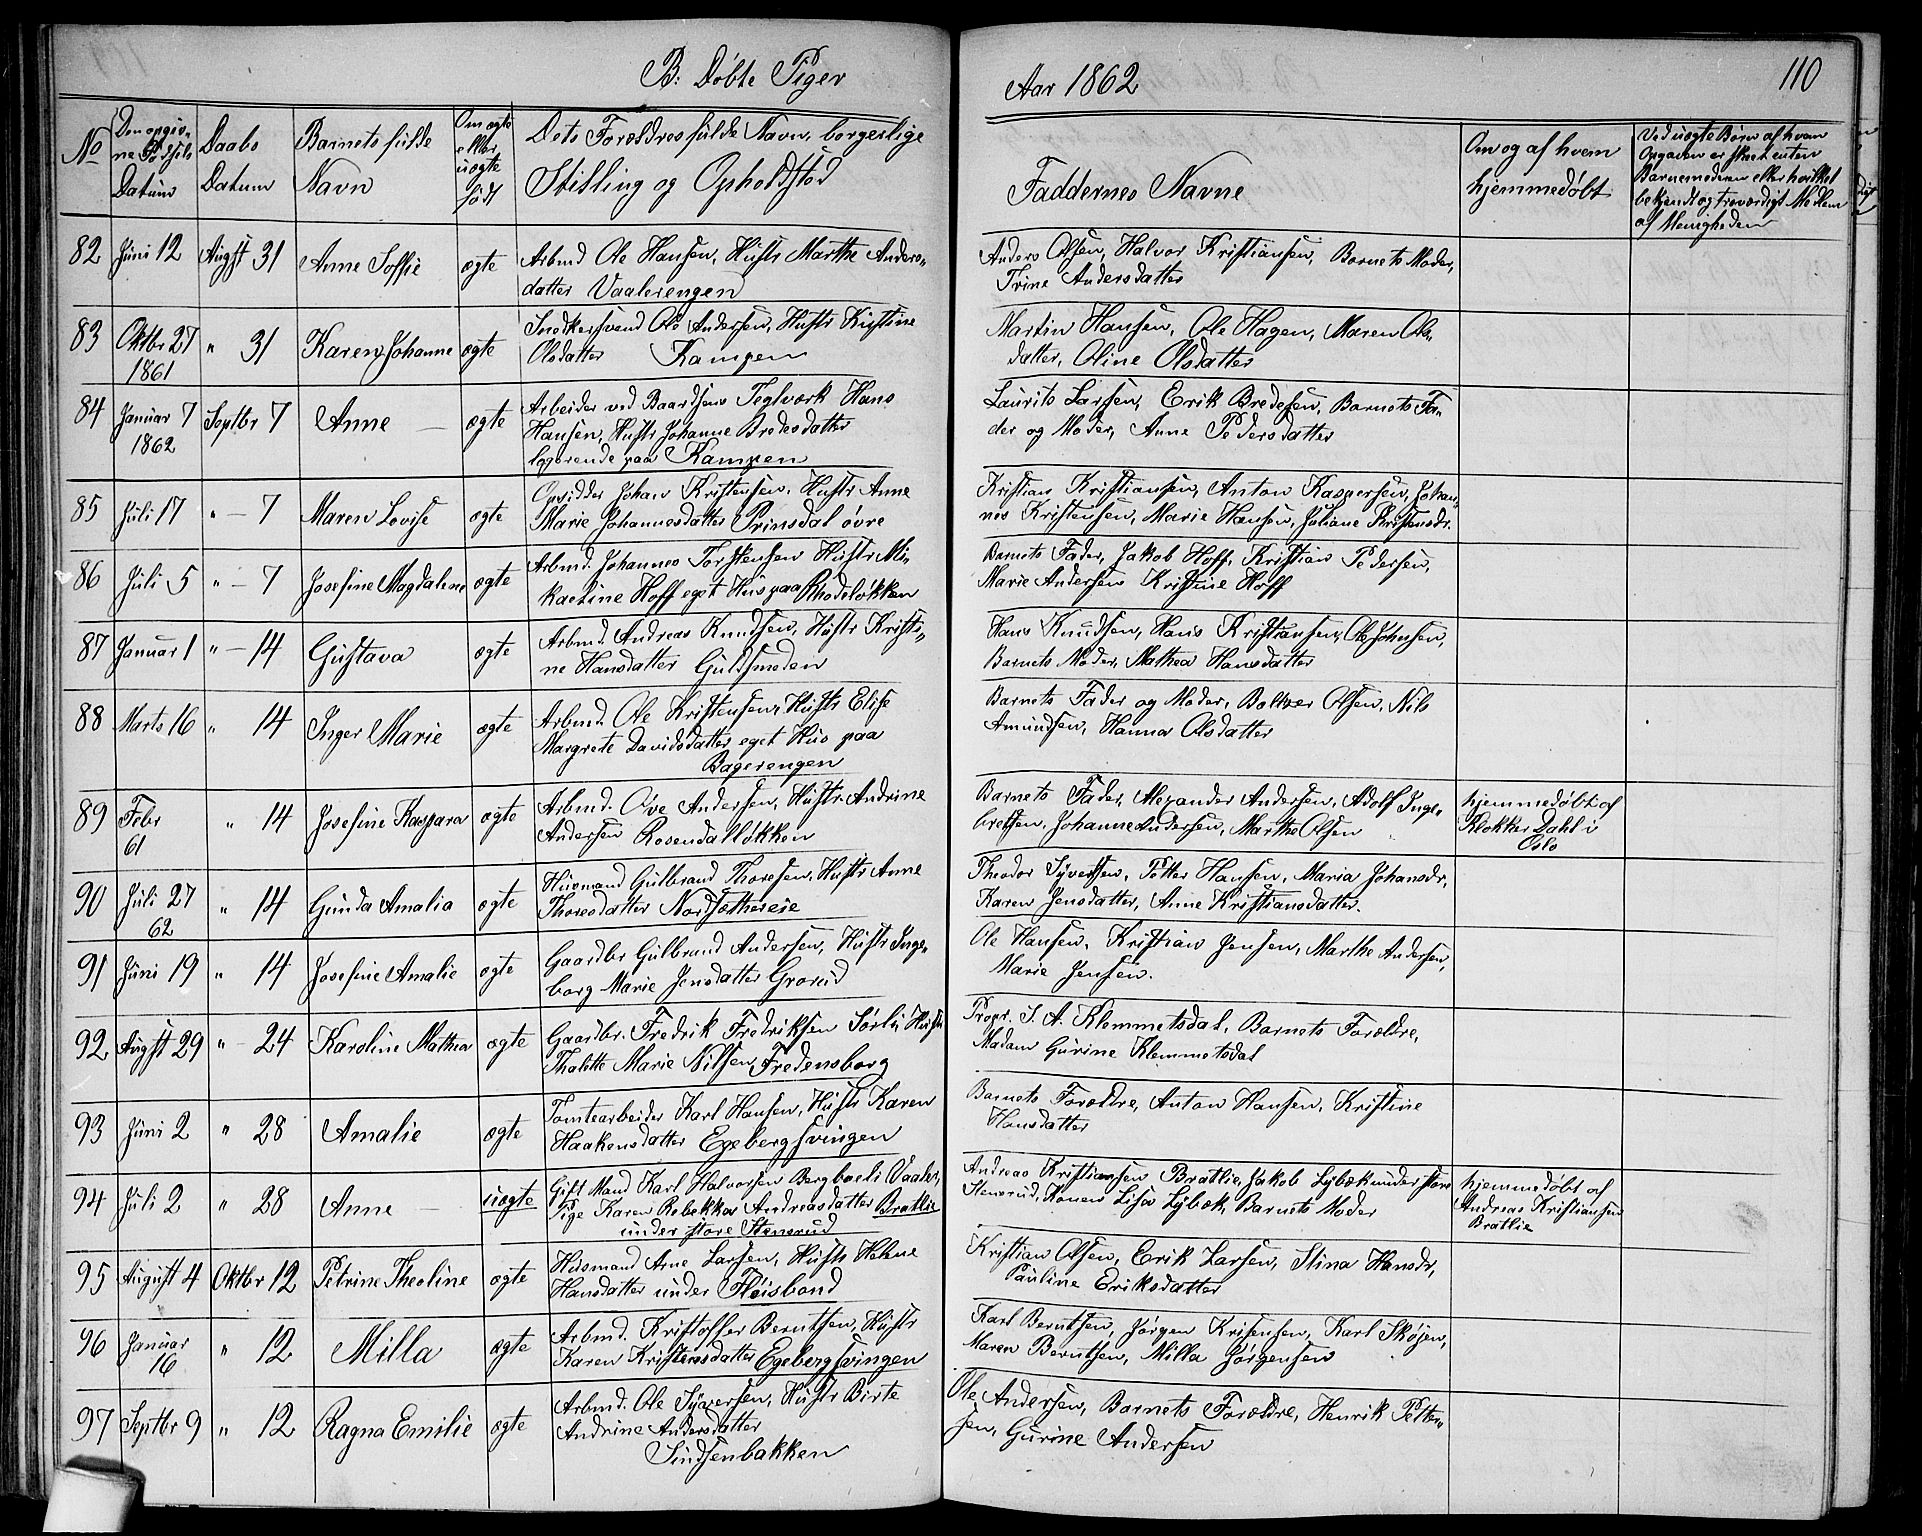 B. Døbte Piger
Aar 1862
110
No
Den opgiv-
ne Fødsels
Datum
Daabs
Datum
Barnets fulde
Navn
Om ægte
eller
uægte
født
Dets Forældres fulde Navn, borgerlige
Stilling og Opholdsted
Faddernes Navne
Om og af hvem
hjemmedøbt
Ved uægte Børn af hvem
Opgaven er skeet enten
Barnemoderen eller hvilket
bekjendt og troværdigt Medlem
af Menigheden
82 Juni 12 Augst 31 Anne Soffie ægte
Arbmd Ole Hansen, Hustr Marthe Anders-
datter Vaalerengen
Anders Olsen, Halvor Kristiansen, Barnets Moder,
Trine Andersdatter
83 Oktbr 27 1861 " 31 Karen Johanne ægte
Snedkersvend Ole Andersen, Hustr Kristine
Olsdatter Kampen
Martin Hansen, Ole Hagen, Maren Ols-
datter, Oline Olsdatter
84 Januar 7 1862 Septbr 7 Anne — ægte
Arbeider ved Baardsens Teglværk Hans
Hansen, Hustr Johanne Bredesdatter
logerende paa Kampen
Laurits Larsen, Erik Bredesen, Barnets Fa-
der og Moder, Anne Pedersdatter
85 Juli 17 " — 7 Maren Lovise ægte
Opsidder Johan Kristensen, Hustr Anne
Marie Johannesdatter Prinsdal øvre
Kristian Kristiansen, Anton Kaspersen, Johan-
nes Kristensen, Marie Hansen, Juliane Kristensdr.
86 Juli 5 " — 7 Josefine Magdalene ægte
Arbmd. Johannes Torstensen Hustr Mi-
kaeline Hoff eget Hus paa Rhodeløkken
Barnets Fader, Jakob Hoff, Kristian Pedersen,
Marie Andersen Kristine Hoff
87 Januar 1 " — 14 Gustava ægte
Arbmd. Andreas Knudsen, Hustr Kristi-
ne Hansdatter Guldsmeden
Hans Knudsen, Hans Kristiansen, Ole Johnsen,
Barnets Moder, Mathea Hansdatter
88 Marts 16 " 14 Inger Marie ægte
Arbmd. Ole Kristensen, Hustr Elise
Margrete Davidsdatter eget Hus paa
Bagerengen
Barnets Fader og Moder, Bolker Olsen, Nils
Amundsen, Hanna Olsdatter
89 Febr 61 " 14 Josefine Kaspara ægte
Arbmd. Ove Andersen, Hustr. Andrine
Andersen Rosendalløkken
Barnets Fader, Alexander Andersen, Adolf Inge-
bretsen, Johanne Andersen, Marthe Olsen
hjemmedøbt af
Klokker Dahl i
Oslo
90 Juli 27 62 " 14 Gunda Amalia ægte
Husmand Gulbrand Thoresen, Hustr Anne
Thoresdatter Nordsethereie
Theodor Syversen, Petter Hansen, Maria Johansdr,
Karen Jensdatter, Anne Kristiansdatter.
91 Juni 19 " 14 Josefine Amalie ægte
Gaardbr Gulbrand Andersen, Hustr Inge-
borg Marie Jensdatter Grorud
Ole Hansen, Kristian Jensen, Marthe Andersen,
Marie Jensen.
92 Augst 29 " — 24 Karoline Mathea ægte
Gaardbr. Fredrik Fredriksen Sørli, Hustr
Thalette Marie Nilsen, Fredensborg
Propr. S. A. Klemmetsdal, Barnets Forældre,
Madam Gurine Klemmetsdal
93 Juni 2 " 28 Amalie ægte
Tomtearbeider Karl Hansen, Hustr Karen
Haakensdatter Egebergsvingen
Barnets Forældre, Anton Hansen, Kristine
Hansdatter
94 Juli 2 " 28 Anne — uægte
Gift Mand Karl Halvorsen Bergbaeli Vaaler,
Pige Karen Rebekka Andreasdatter Bratlie
under store Stensrud
Andreas Kristiansen Bratlie, Jakob Lybæk under store
Stensrud, Konen Lisa Lybæk, Barnets Moder
hjemmedøbt af
Andreas Kristiansen
Bratlie
95 August 4 Oktbr 12 Petrine Theoline ægte
Husmand Arne Larsen, Hustr Helene
Hansdatter under Fløisbond
Kristian Olsen, Erik Larsen, Stina Hansdr,
Pauline Eriksdatter
96 Januar 16 " 12 Milla ægte
Arbmd. Kristoffer Berntsen, Hustr
Karen Kristensdatter Egebergsvingen
Karl Berntsen, Jørgen Krisensen, Karl Skøjen,
Maren Berntsen, Milla Jørgensen
97 Septbr 9 " 12 Ragna Emilie ægte
Arbmd. Ole Syversen, Hustr Birte
Andrine Andersdatter
Sindsenbakken
Ole Andersen, Barnets Forældre, Henrik Petter-
sen, Gurine Andersen